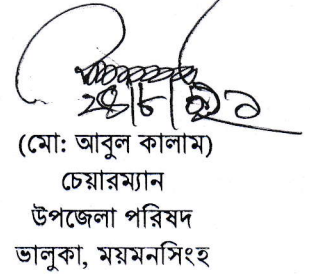 (মো: আবুল কালাম)
চেয়ারম্যান
উপজেলা পরিষদ
ভালুকা, ময়মনসিংহ